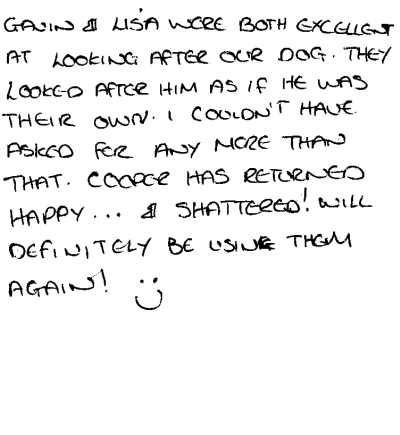 GAVIN & LISA WERE BOTH EXCELLENT
AT LOOKING AFTER OUR DOG. THEY
LOOKED AFTER HIM AS IF HE WAS
THEIR OWN. I COULDN'T HAVE
ASKED FOR ANY MORE THAN
THAT. COOPER HAS RETURNED
HAPPY... & SHATTERED! WILL
DEFINITELY BE USING THEM
AGAIN!